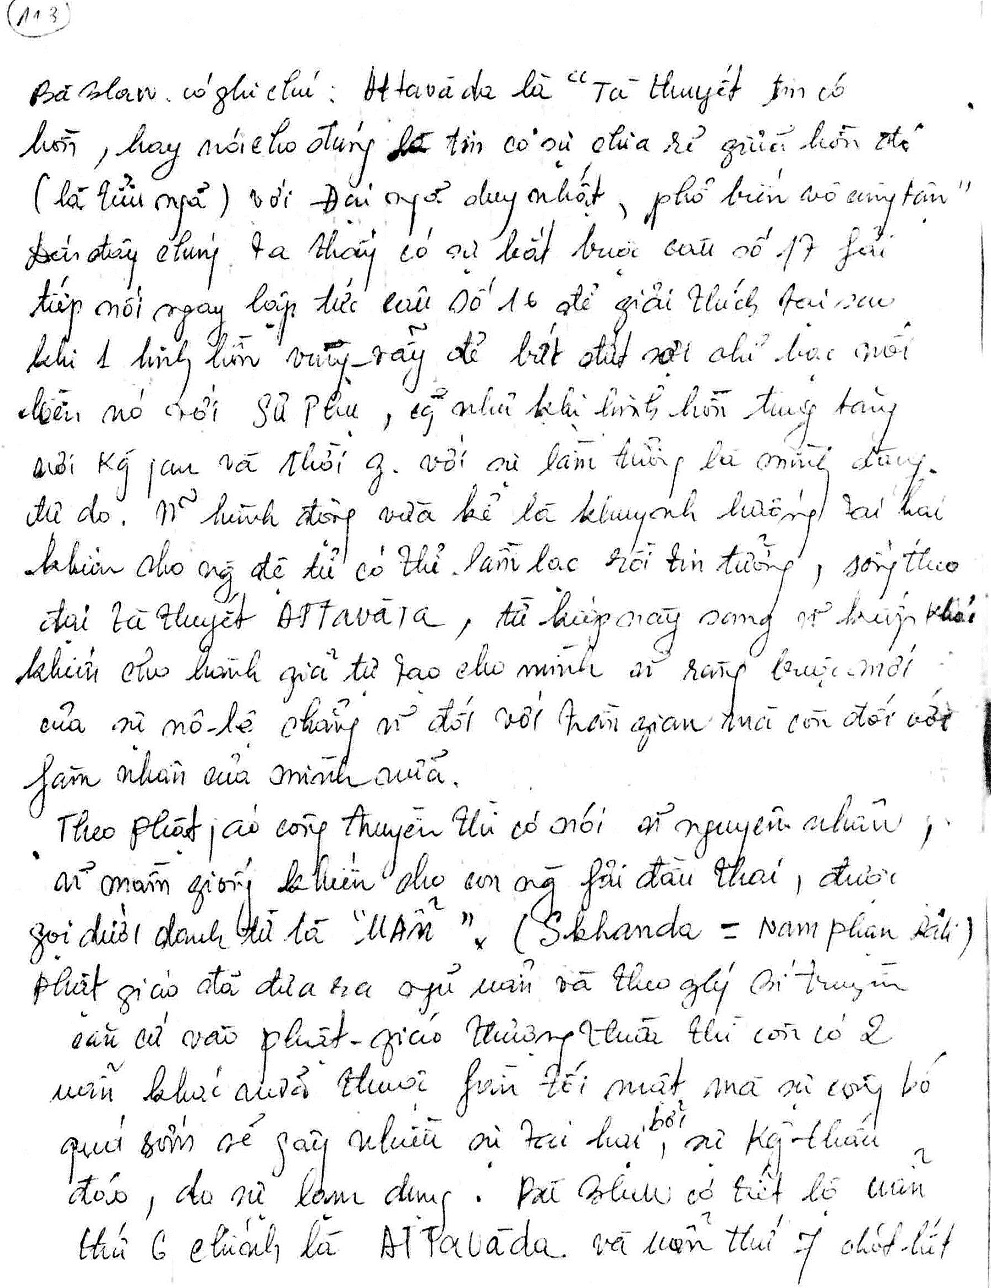 113
Bà Blav. có ghi chú: Attavāda là "Tà thuyết tin có
hồn, hay nói cho đúng là tin có sự chia rẽ giữa hồn đó
(là tiểu ngã) với Đại ngã duy nhất, phổ biến vô cùng tận"
Đến đây chúng ta thấy có sự bắt buộc câu số 17 fải
tiếp nối ngay lập tức câu số 16 để giải thích tại sao
khi 1 linh hồn vùng vẫy để bứt đứt sợi chỉ bạc nối
liền nó với Sư Phụ, cg như khi linh hồn tung tăng
nơi Kg jan và thời g. với sự lầm tưởng là mình đang
tự do. N~ hành động vừa kể là khuynh hướng tai hại
khiến cho ng đệ tử có thể lầm lạc rồi tin tưởng, sống theo
đại tà thuyết ATTavāTa, từ kiếp này sang n~ kiếp khác
khiến cho hành giả tự tạo cho mình n~ ràng buộc mới
của sự nô-lệ chẳng n~ đối với trần gian mà còn đối với
fàm nhân của mình nữa.
Theo Phật jáo công truyền thì có nói n~ nguyên nhân,
n~ mầm giống khiến cho con ng fải đầu thai, được
gọi dưới danh từ là "UẨN". (Skhanda = Nam phạn Pali)
Phật giáo đã đưa ra ngũ uẩn và theo glý bí truyền
căn cứ vào phật-giáo thượng thừa thì còn có 2
uẩn khác nữa thuộc fần tối mật mà sự công bố
quá sớm sẽ gây nhiều sự tai hại bởi sự Kg-thấu
đáo, do sự lạm dụng. Bà Blav có tiết lộ uẩn
thứ 6 chính là ATTavāda và uẩn thứ 7 chót-hết